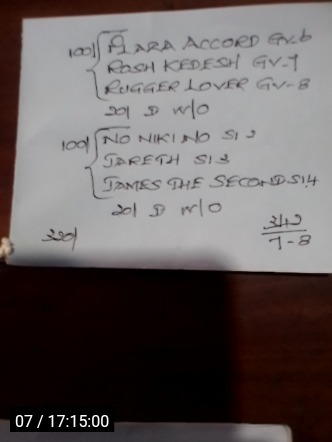 100/ PLARA ACCORD GV-6
ROSH KEDESH GV-7
RUGGER LOVER GV-8
20/ D W/O
100/ NO NIKI NO SI 2
JARETH SI 3
JAMES THE SECOND SI.4
20/ D W/O
320/
7-8
07 / 17:15:00